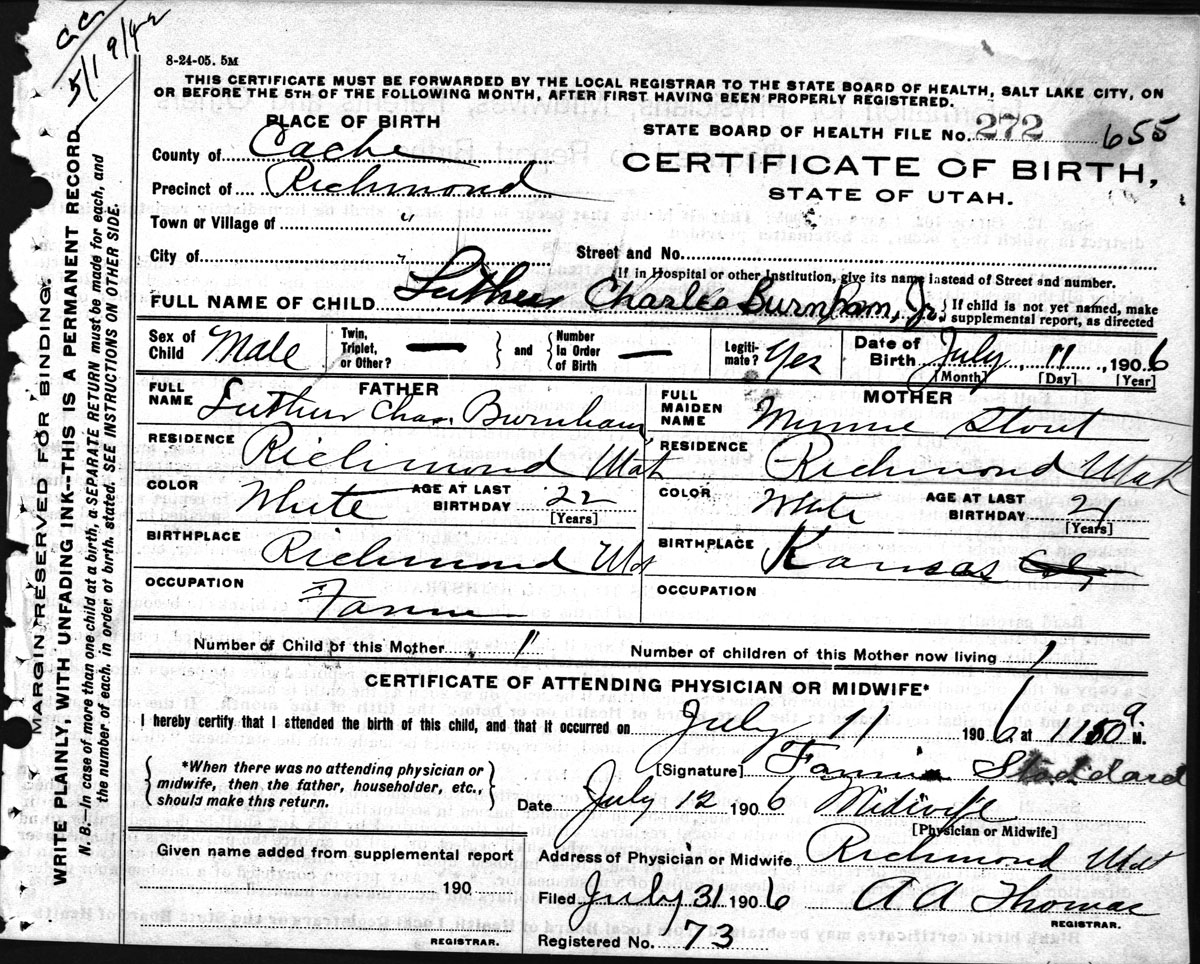 C C
5/1 9/42
8-24-05. 5M
THIS CERTIFICATE MUST BE FORWARDED BY THE LOCAL REGISTRAR TO THE STATE BOARD OF HEALTH, SALT LAKE CITY, ON
OR BEFORE THE 5TH OF THE FOLLOWING MONTH, AFTER FIRST HAVING BEEN PROPERLY REGISTERED.
PLACE OF BIRTH
STATE BOARD OF HEALTH FILE No. 272 655
County of Cache
CERTIFICATE OF BIRTH,
Precinct of Richmond
STATE OF UTAH.
Town or Village of "
City of " Street and No.
If in Hospital or other Institution, give its name instead of Street and number.
FULL NAME OF CHILD Luther Charles Burnham, Jr. { If child is not yet named, make
supplemental report, as directed
Sex of Child Male Twin, Triplet, or Other? — } and { Number in Order of Birth — Legiti-mate? Yes Date of Birth July 11, 1906
[Month] [Day] [Year]
FATHER
FULL NAME Luther Chas. Burnham
RESIDENCE Richmond Utah
COLOR White AGE AT LAST BIRTHDAY 22
[Years]
BIRTHPLACE Richmond Utah
OCCUPATION
Farmer
MOTHER
FULL MAIDEN NAME Minnie Stout
RESIDENCE Richmond Utah
COLOR White AGE AT LAST BIRTHDAY 21
[Years]
BIRTHPLACE Kansas
OCCUPATION
Number of Child of this Mother 1 Number of children of this Mother now living 1
CERTIFICATE OF ATTENDING PHYSICIAN OR MIDWIFE*
I hereby certify that I attended the birth of this child, and that it occurred on July 11 1906 at 1150 a. M.
{ *When there was no attending physician or
midwife, then the father, householder, etc.,
should make this return. }
[Signature] Fannie Stoddard
Date July 12 1906 Midwife
[Physician or Midwife]
Given name added from supplemental report
190
REGISTRAR.
Address of Physician or Midwife Richmond Utah
Filed July 31 1906 A A Thomas
REGISTRAR.
Registered No. 73
MARGIN RESERVED FOR BINDING.
WRITE PLAINLY, WITH UNFADING INK--THIS IS A PERMANENT RECORD
N. B. In case of more than one child at a birth, a SEPARATE RETURN must be made for each, and
the number of each, in order of birth, stated. SEE INSTRUCTIONS ON OTHER SIDE.